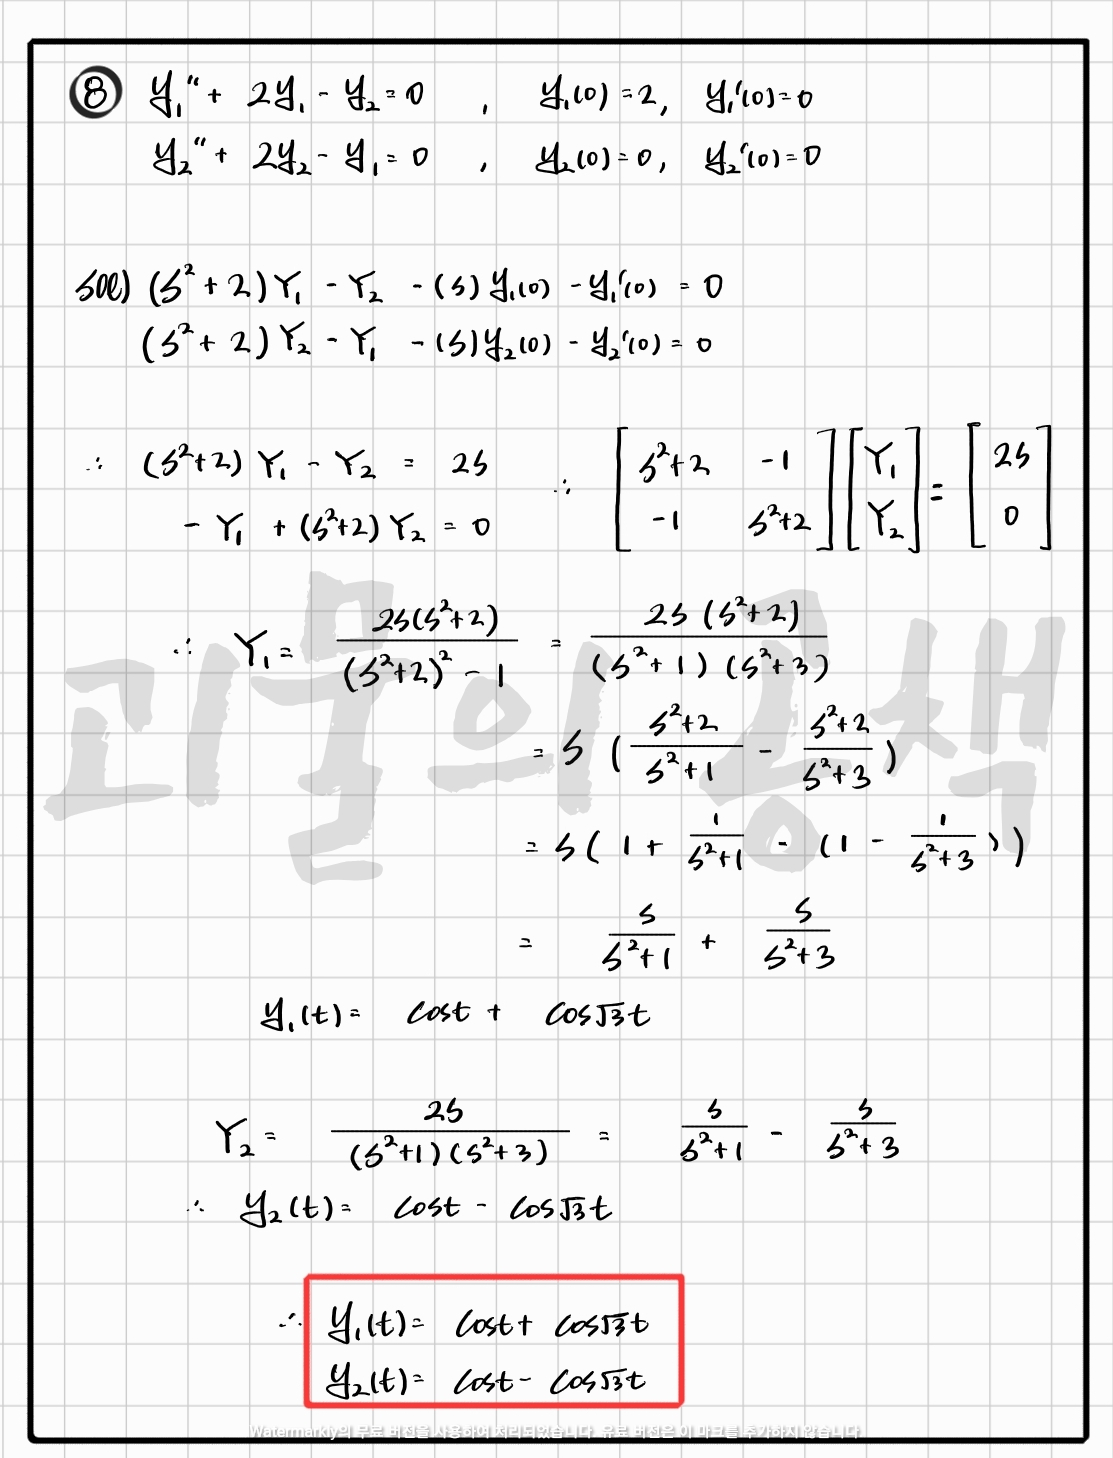 ⑧ y₁'' + 2y₁ - y₂ = 0 , y₁(0) = 2, y₁'(0) = 0
y₂'' + 2y₂ - y₁ = 0 , y₂(0) = 0, y₂'(0) = 0
sol) (s² + 2)Y₁ - Y₂ - (s)y₁(0) - y₁'(0) = 0
(s² + 2)Y₂ - Y₁ - (s)y₂(0) - y₂'(0) = 0
∴ (s²+2) Y₁ - Y₂ = 2s ∴ [s²+2 -1; -1 s²+2] [Y₁; Y₂] = [2s; 0]
- Y₁ + (s²+2) Y₂ = 0
∴ Y₁ = 2s(s²+2) / ((s²+2)² - 1) = 2s (s²+2) / ((s²+1)(s²+3))
= s ( (s²+2)/(s²+1) - (s²+2)/(s²+3) )
= s ( 1 + 1/(s²+1) - (1 - 1/(s²+3)) )
= s/(s²+1) + s/(s²+3)
y₁(t) = cost + cos√3t
Y₂ = 2s / ((s²+1)(s²+3)) = s/(s²+1) - s/(s²+3)
∴ y₂(t) = cost - cos√3t
∴ y₁(t) = cost + cos√3t
y₂(t) = cost - cos√3t
괴물의 공책
Watermarkly의 무료 버전을 사용하여 처리되었습니다. 유료 버전은 이 마크를 추가하지 않습니다.